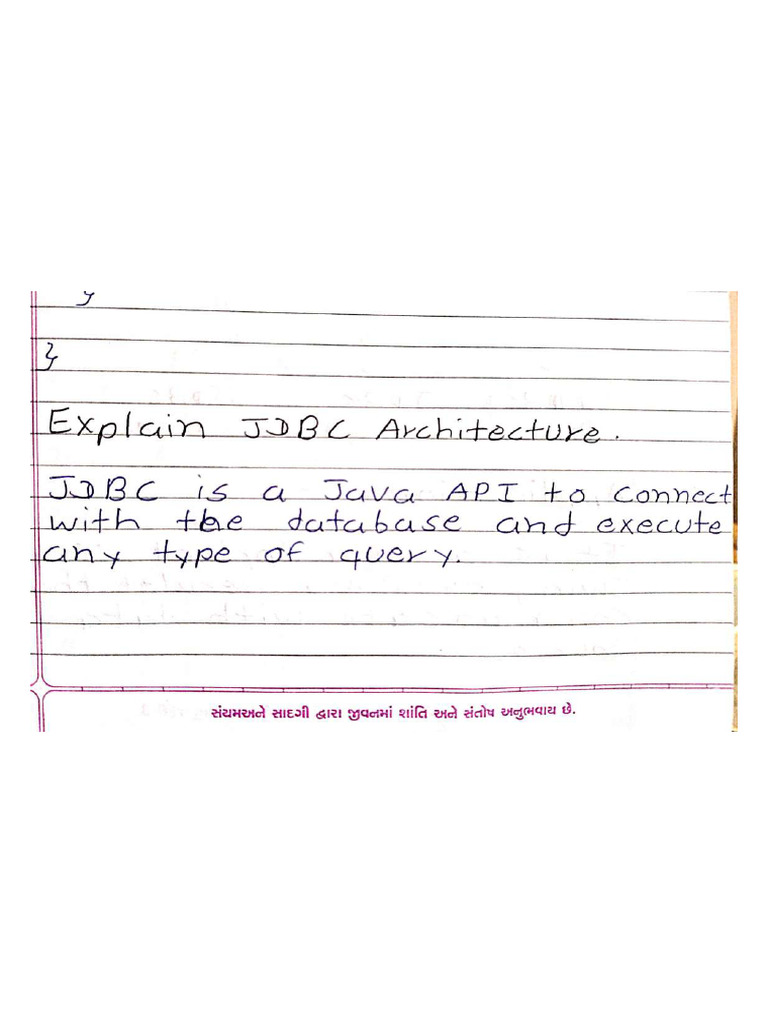 }
}
Explain JDBC Architecture.
JDBC is a Java API to connect
with the database and execute
any type of query.
સંયમઅને સાદગી દ્વારા જીવનમાં શાંતિ અને સંતોષ અનુભવાય છે.